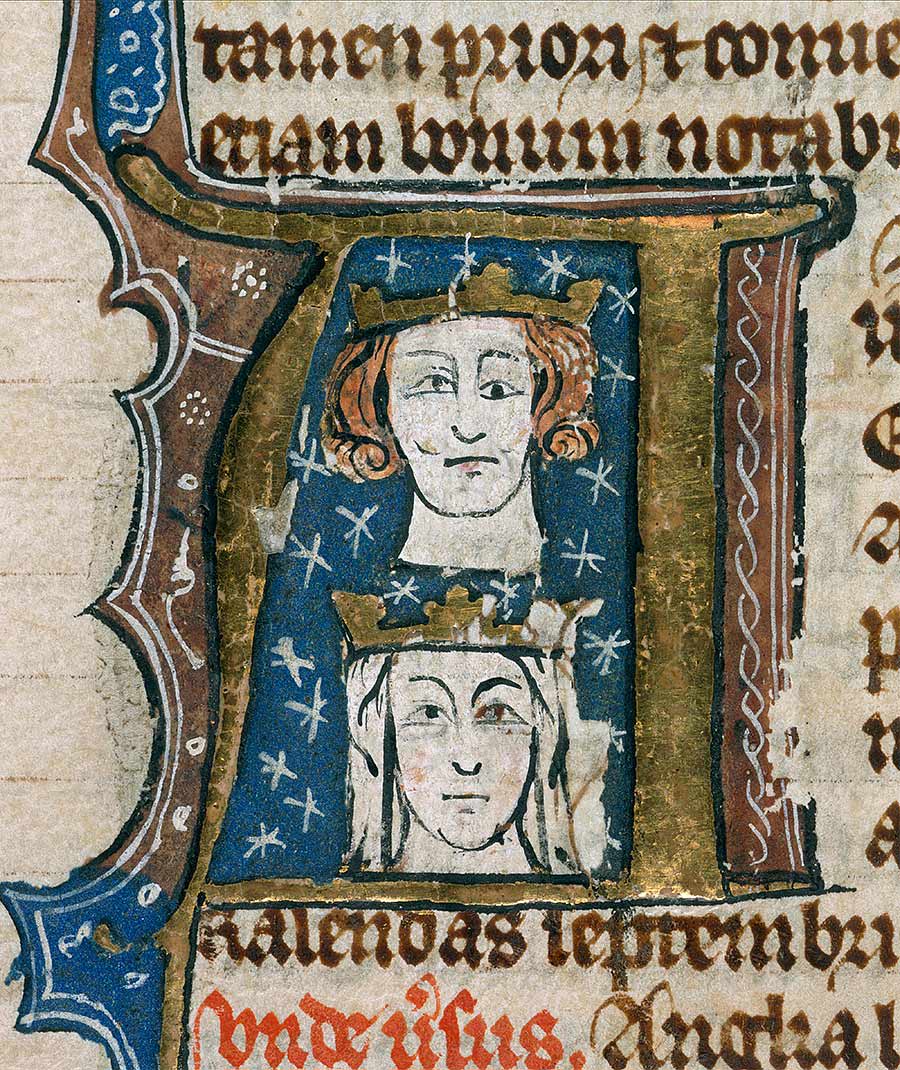 tamen priori ⁊ conue
etiam bonum notabi
A
kalendas septembri
Vnde v̓sus. Anglia l